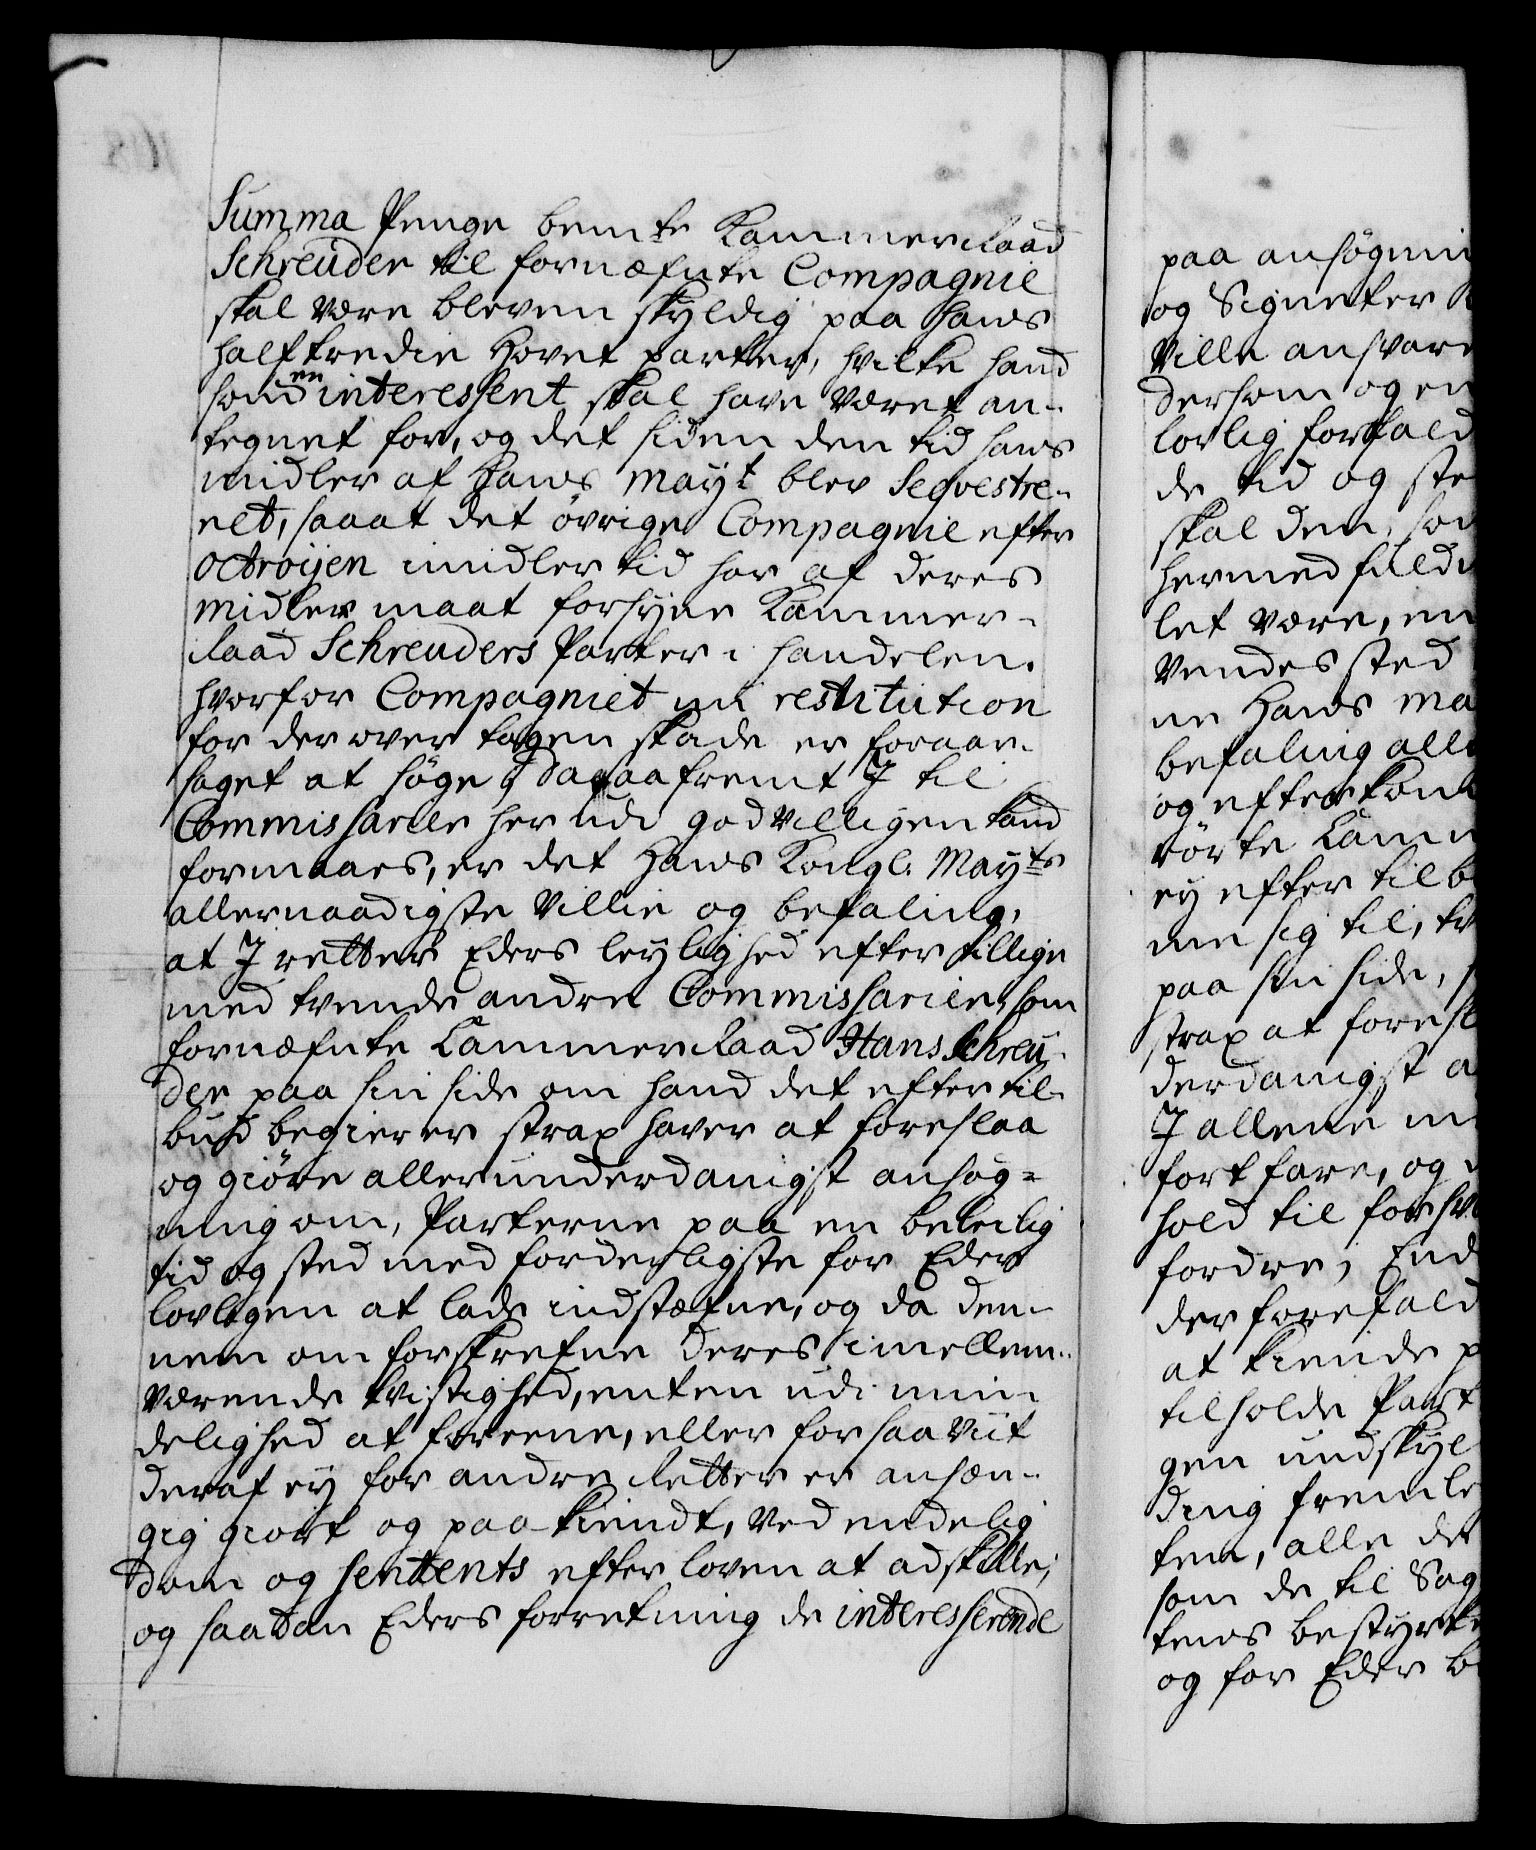 Summa Penge bemte Kammerraad
Schreuder til fornæfnte Compagnie
skal være bleven skyldig paa hans
halftredie Hovet parter, hvilke hand
som en interessent skal have været an-
tegnet for, og det siden den tid hans
midler af Hans Mayt blev Seqvestre-
ret, saaat det øvrige Compagnie efter
octroijen imidlertid har af deres
midler maat forsyne Kammer-
raad Schreuders Parter i handelen.
hvorfor Compagniet nu restitution
for derover tagen skade er foraar-
saget at søge, dasaafremt I til
Commissarier her udi godvilligen kand
formaaes, er det Hans Kongl. Mayts
allernaadigste Villie og befaling,
at I retter Eders leylighed efter tillige
med tvende andre Commissarier, som
fornæfnte Cammerraad Hans Schreu-
der paa sin side om hand det efter til-
bud begierer strax haver at foreslaa
og giøre allerunderdanigst ansøg-
ning om, Parterne paa en beleilig
tid og sted med forderligste for Eder
lovligen at lade indstæfne, og da den-
nem om forskrefne deres imellem-
værende tvistighed, enten udi min-
delighed at foreene, eller forsaaviit
deraf ey for andre Retter er anhæn-
gig giort og paakiendt, ved endelig
dom og sentents efter loven at adskille;
og saadan Eders forretning de interesserende
paa ansøgni
og Signeter
ville ansvare
dersom og en
lovlig forfald
de tid og ste
skal den, so
hermed fuld
let være, en
vendes sted
ne Hans Ma
befaling alle
og efterkom
rørte Camm
ey efter tilb
me sig til, tv
paa sin side,
strax at foresl
derdanigst a
I allene m
fortfare, og
hold til forsv
fordre, End
der forefald
at kiende p
tilholde Part
gen undskyl
ding fremle
ten, alle de
som de til Sag
tens bestyrke
og for Eder b